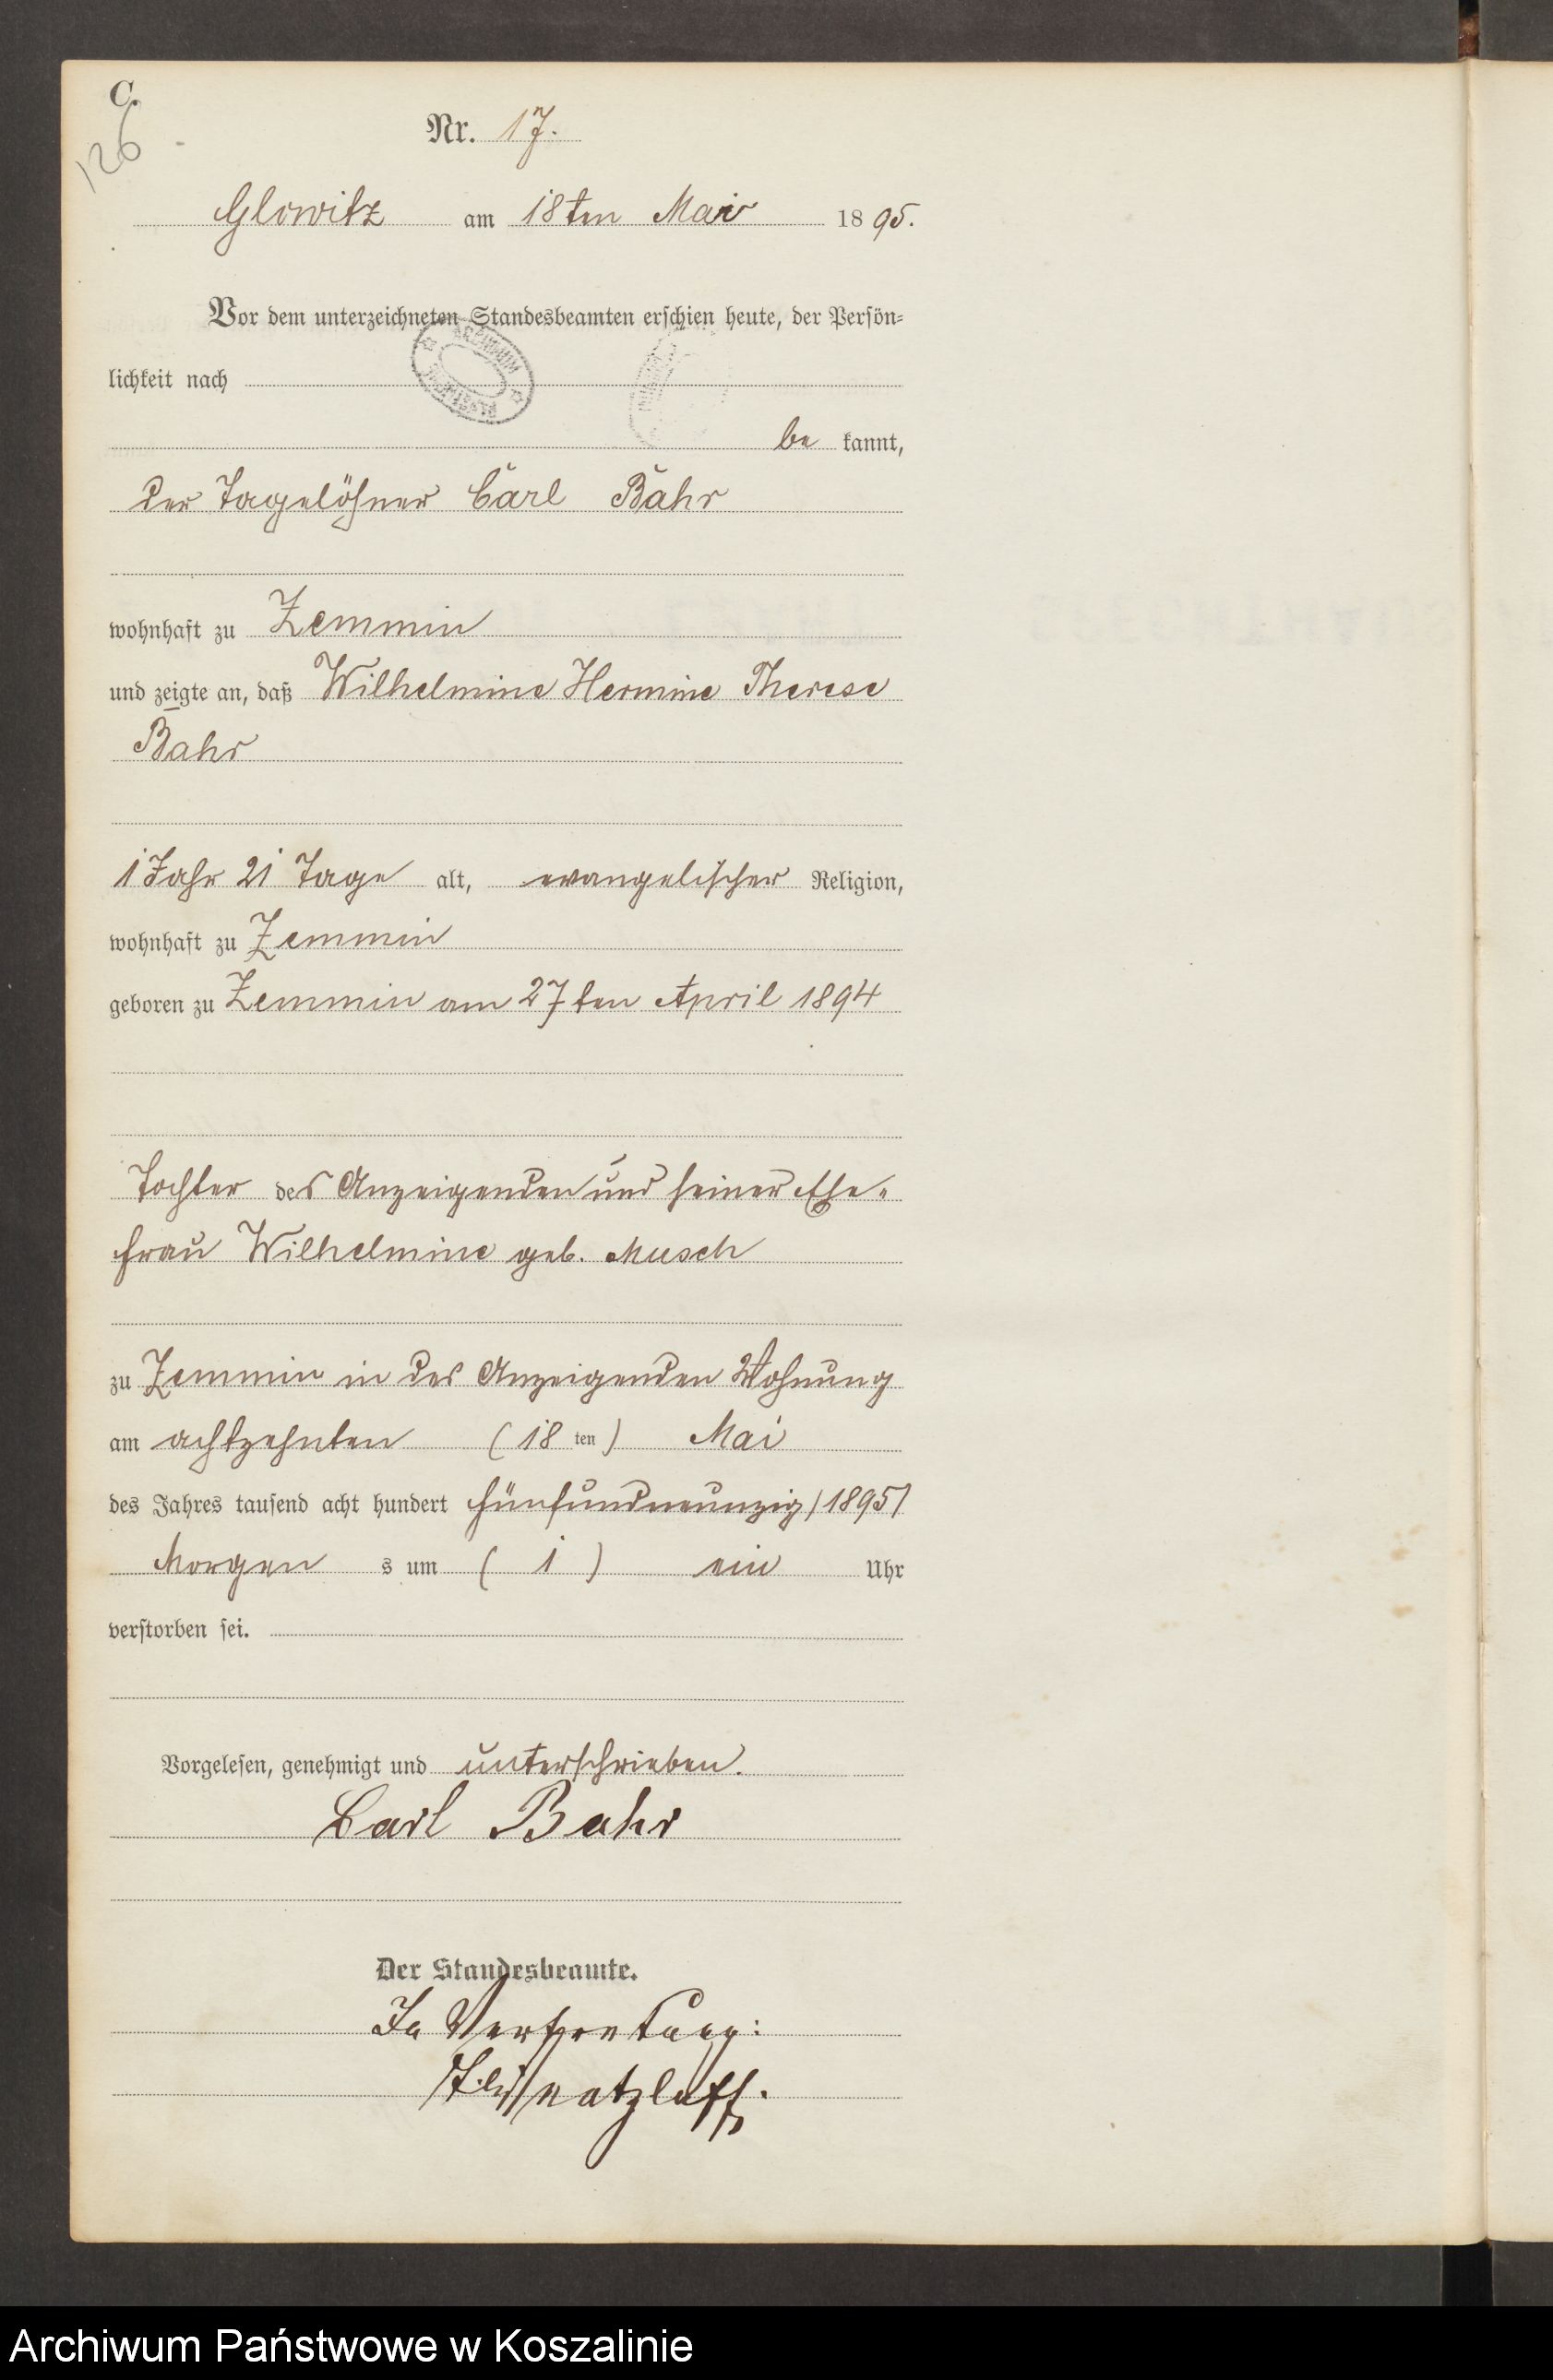 C.
126
Nr. 17.
Glowitz am 18ten Mai 1895.
Vor dem unterzeichneten Standesbeamten erschien heute, der Persön-
lichkeit nach
be kannt,
der Tagelöhner Carl Bahr
wohnhaft zu Zemmin
und zeigte an, daß Wilhelmine Hermine Therese
Bahr
1 Jahr 21 Tage alt, evangelischer Religion,
wohnhaft zu Zemmin
geboren zu Zemmin am 27ten April 1894
Tochter des Anzeigenden und seiner Ehe-
frau Wilhelmine geb. Musch
zu Zemmin in des Anzeigenden Wohnung
am achtzehnten (18 ten) Mai
des Jahres tausend acht hundert fünfundneunzig /1895/
Morgen s um (1) ein Uhr
verstorben sei.
Vorgelesen, genehmigt und unterschrieben.
Carl Bahr
Der Standesbeamte.
In Vertretung:
Archiwum Państwowe w Koszalinie